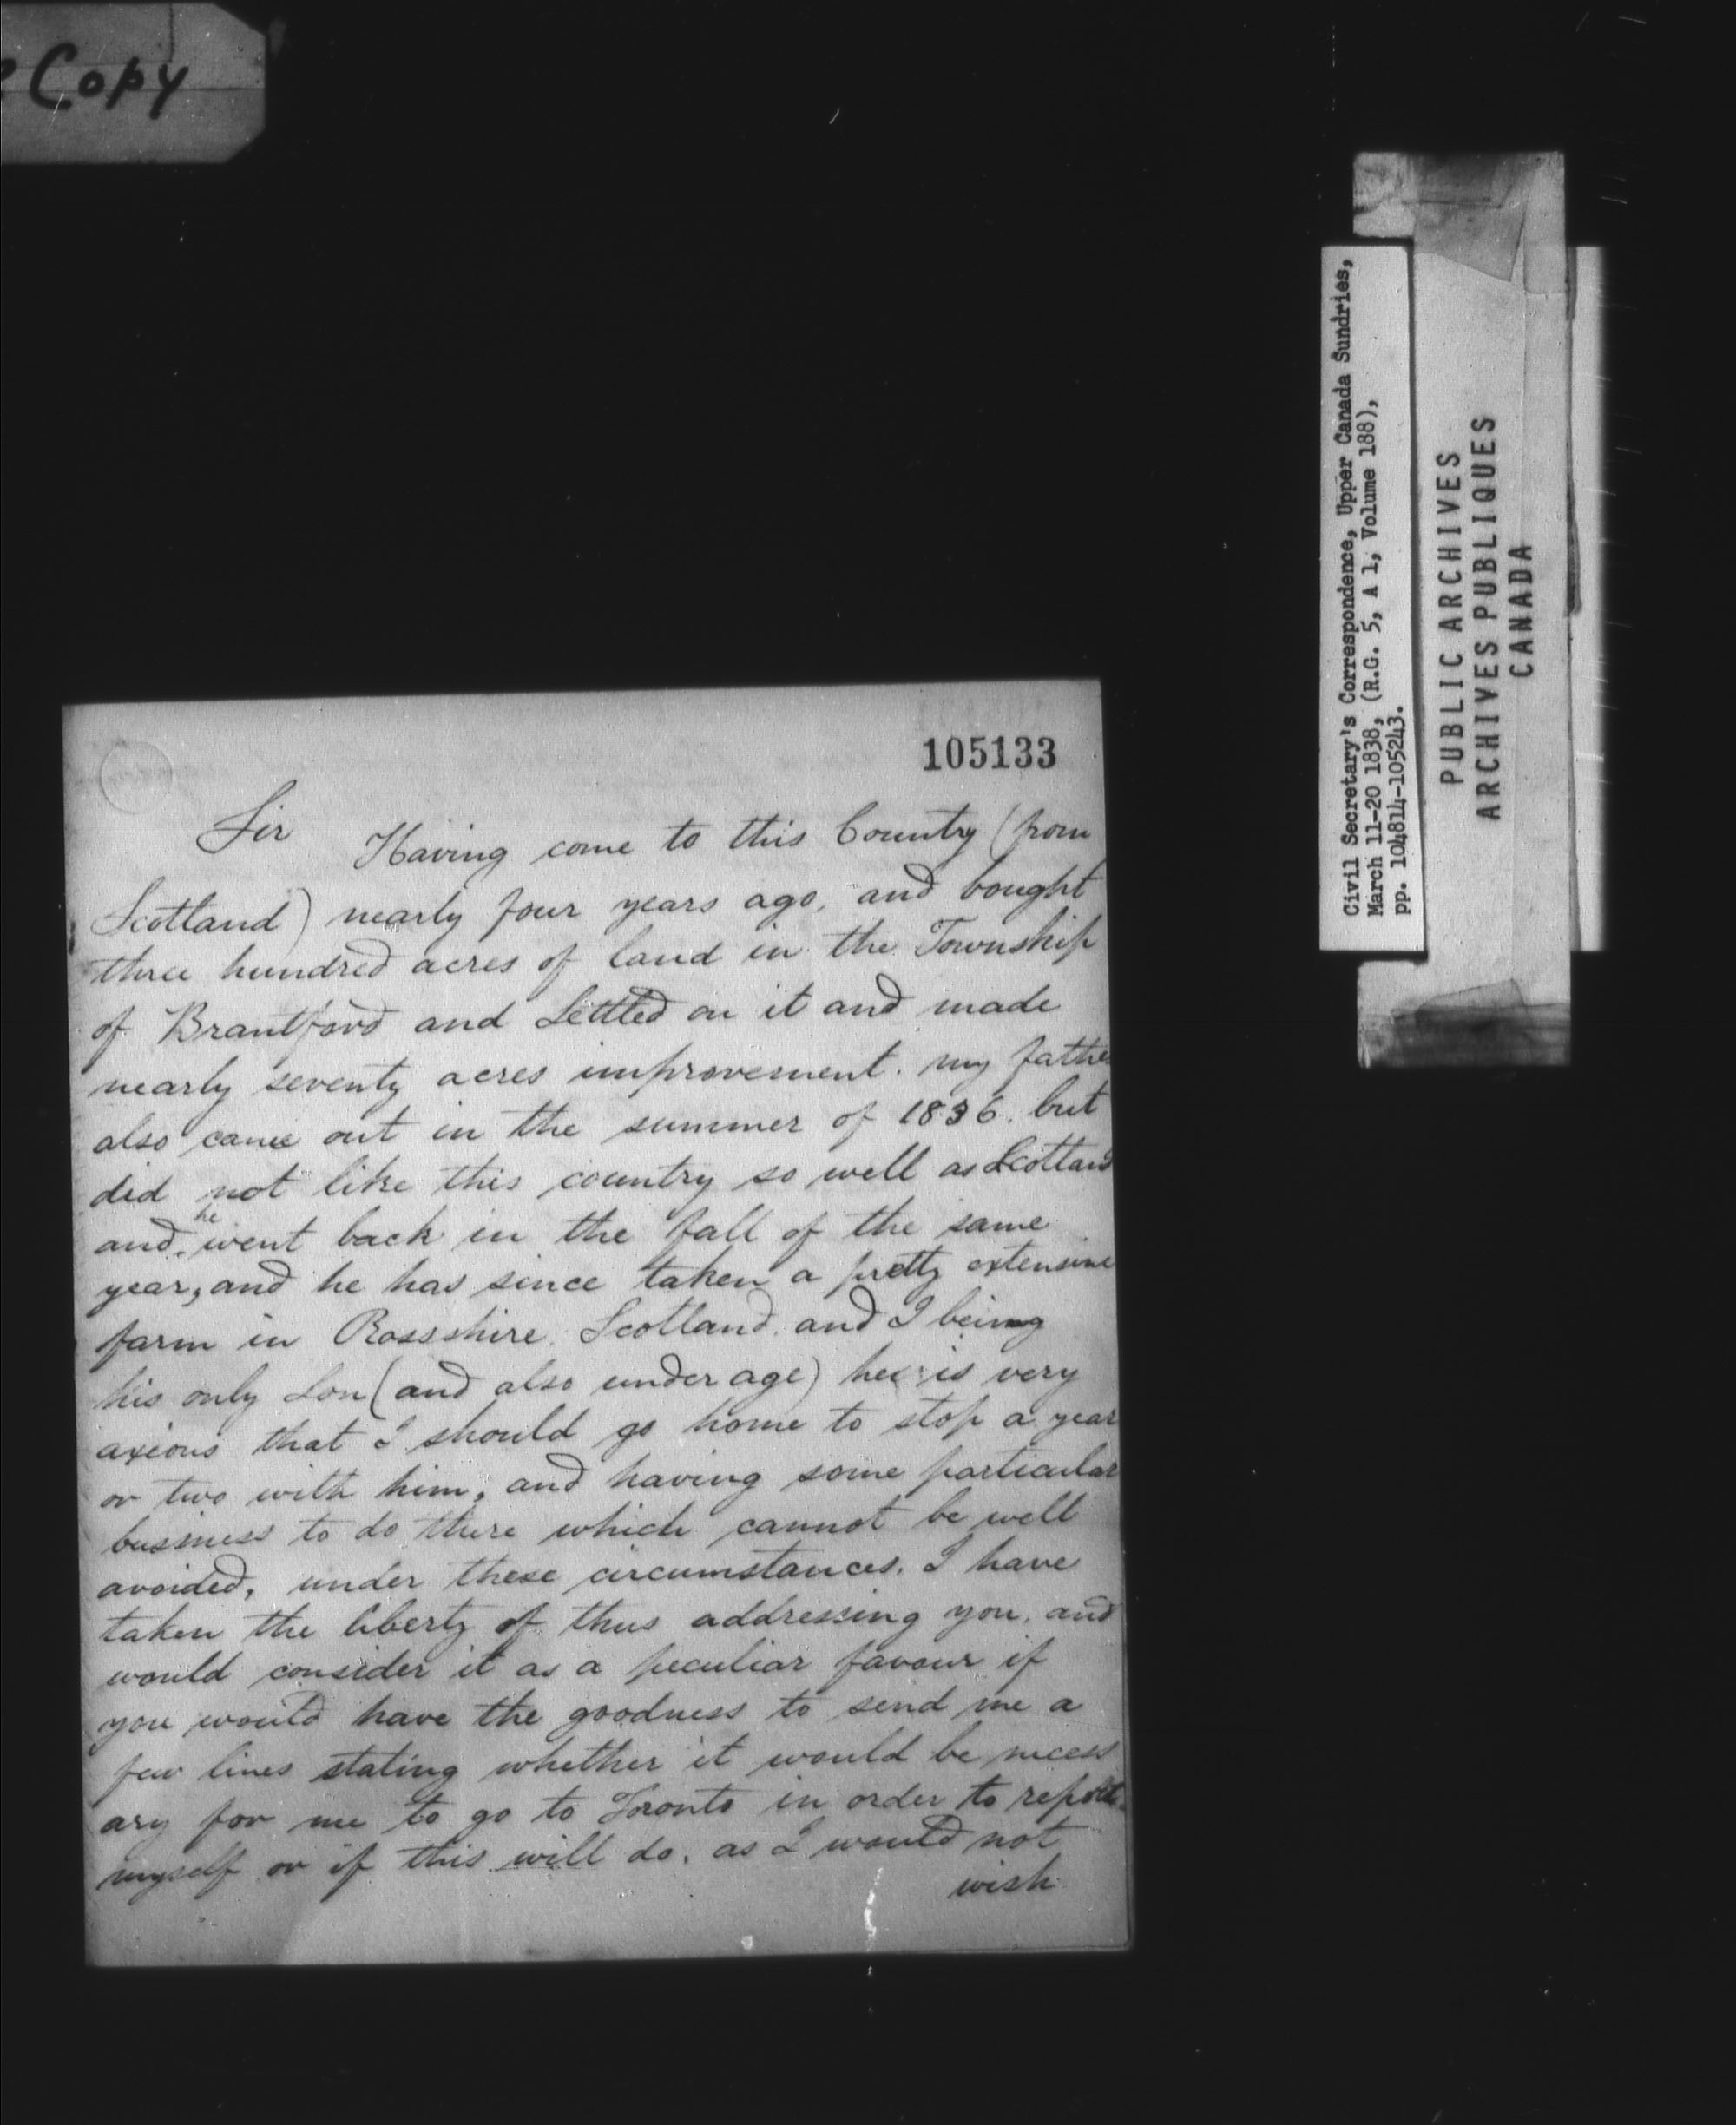 Copy
105133
Sir Having come to this Country (from
Scotland) nearly four years ago, and bought
three hundred acres of land in the Township
of Brantford and Settled on it and made
nearly seventy acres improvement. my father
also came out in the summer of 1836. but
did not like this country so well as Scotland
and he went back in the fall of the same
year, and he has since taken a pretty extensive
farm in Rossshire Scotland. and I being
his only Son (and also under age) he is very
axious that I should go home to stop a year
or two with him, and having some particular
business to do there which cannot be well
avoided, under these circumstances. I have
taken the liberty of thus addressing you, and
would consider it as a peculiar favour if
you would have the goodness to send me a
few lines stating whether it would be necess
ary for me to go to Toronto in order to report
myself or if this will do, as I would not
wish
Civil Secretary's Correspondence, Upper Canada Sundries,
March 11-20 1838, (R.G. 5, A 1, Volume 188),
pp. 104814-105243.
PUBLIC ARCHIVES
ARCHIVES PUBLIQUES
CANADA